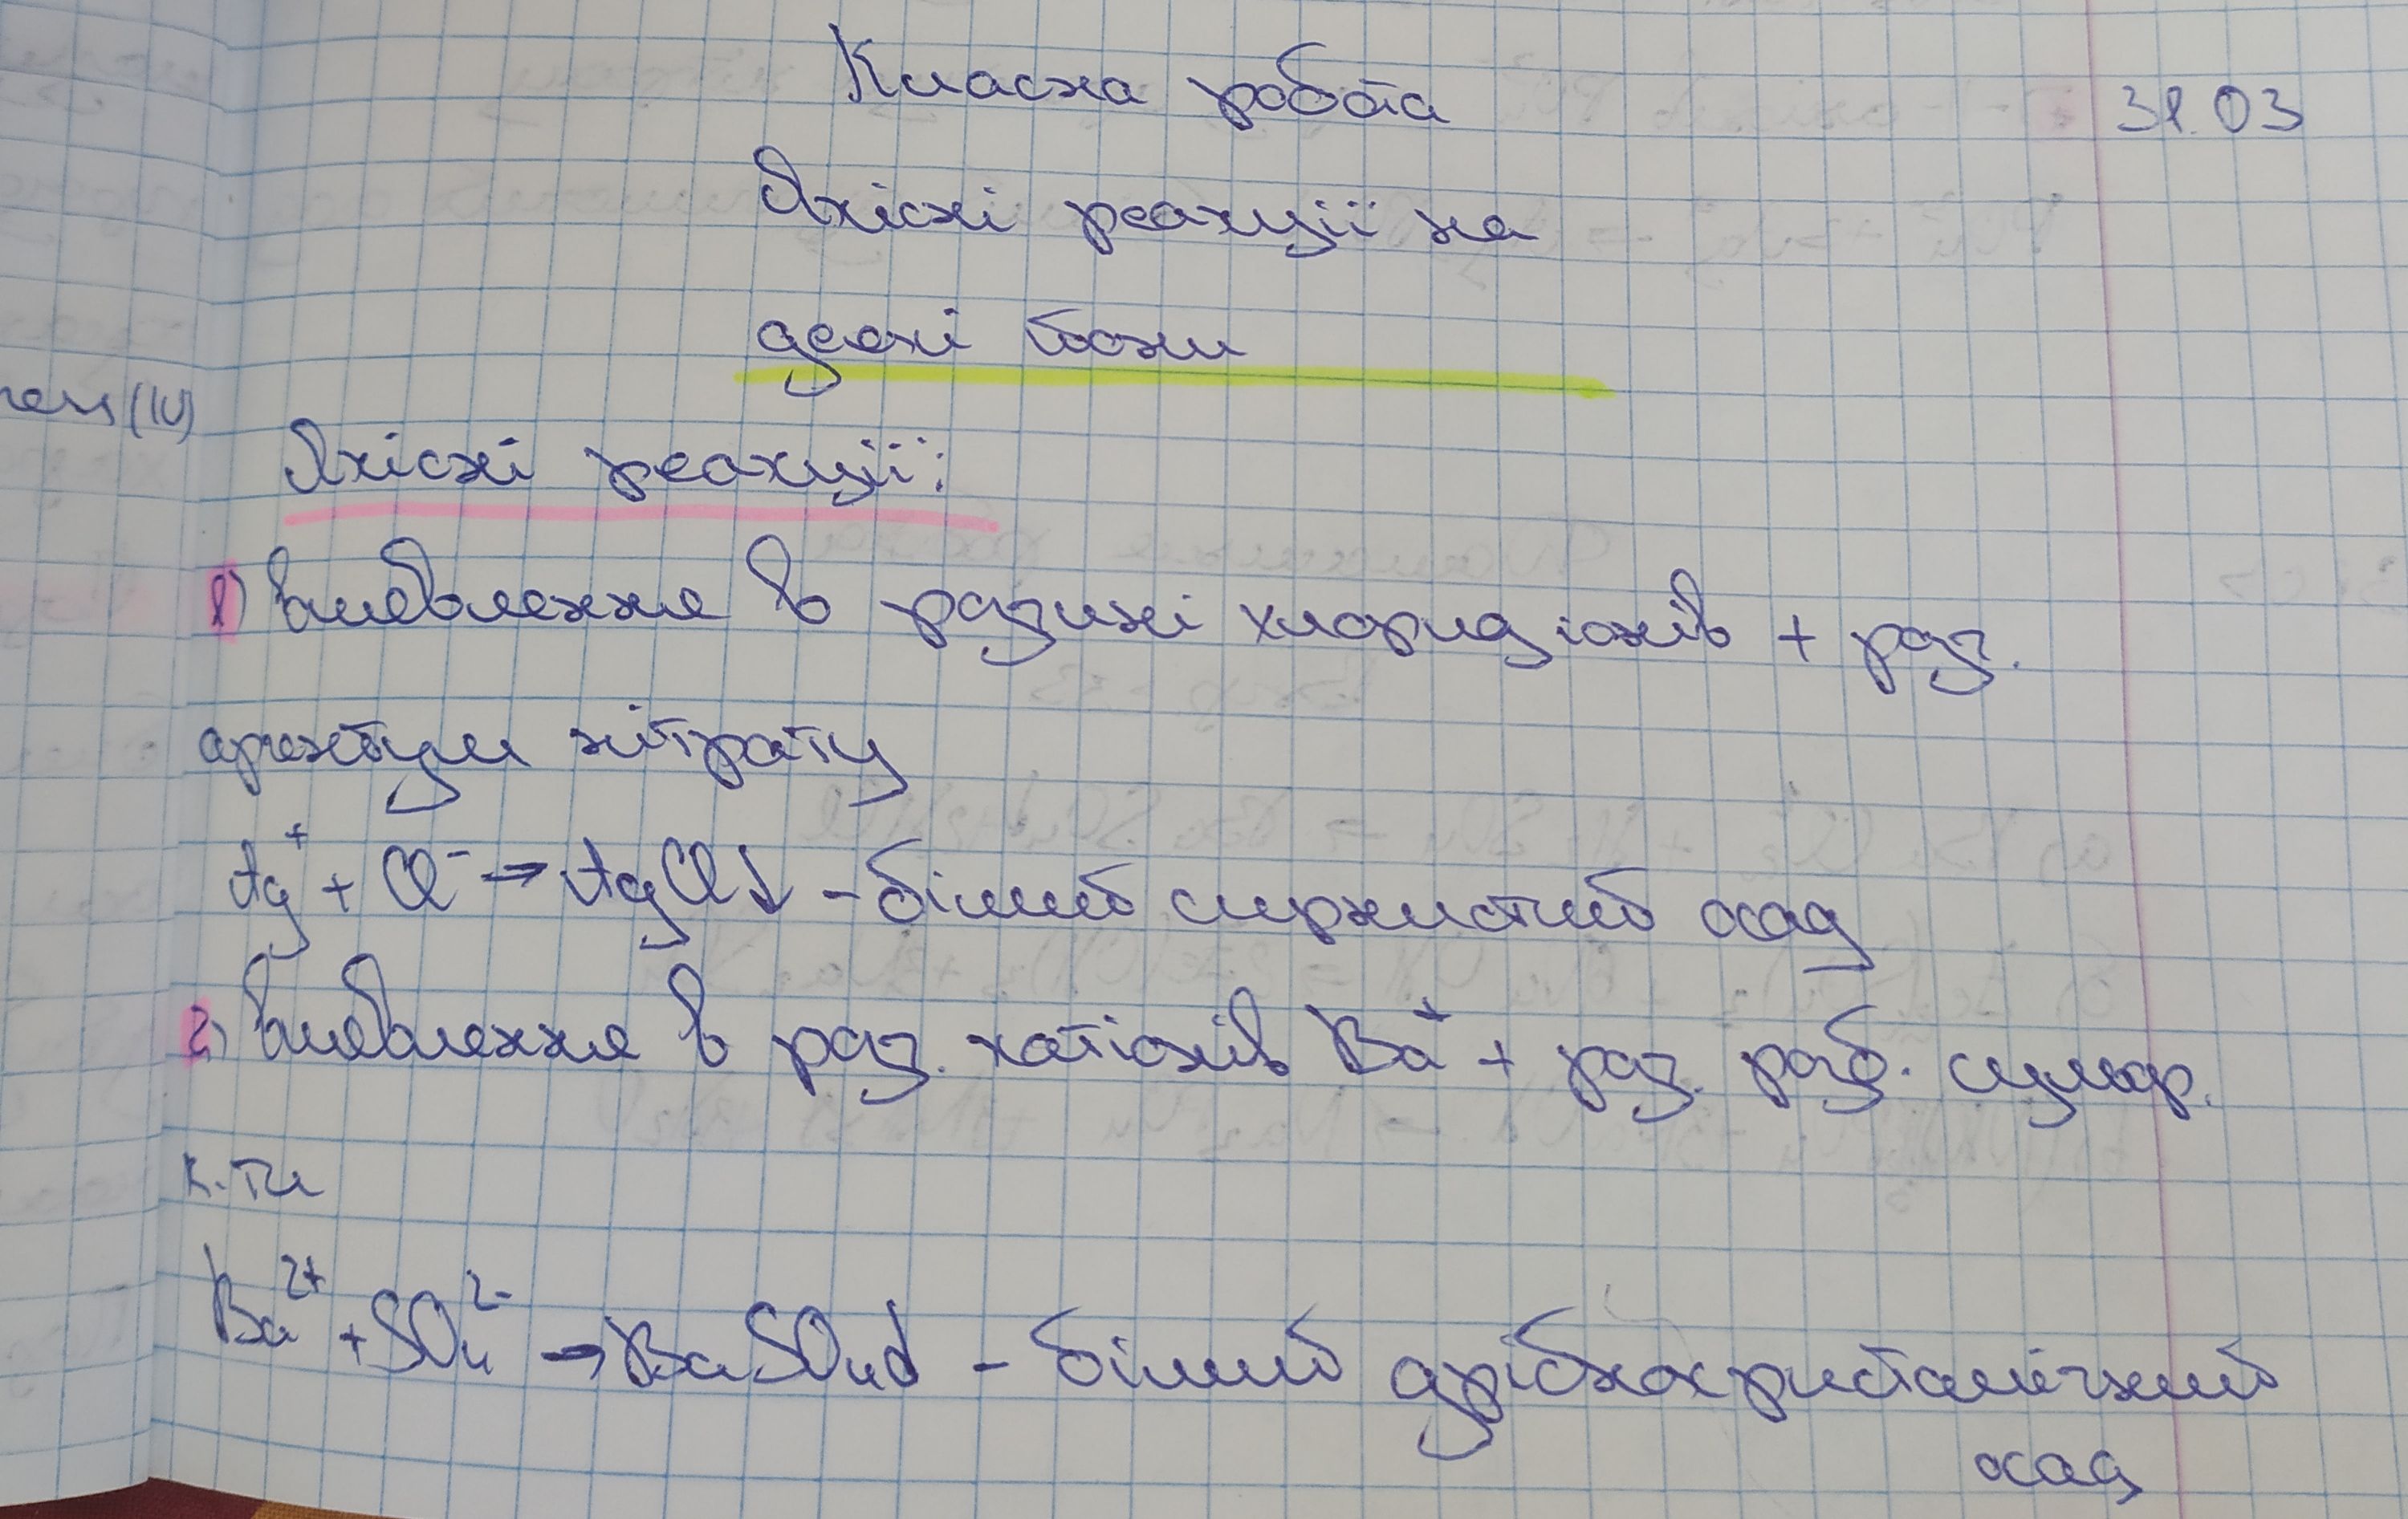 Класна робота
31.03
Якісні реакції на
деякі йони
Якісні реакції:
1) виявлення в розчині хлорид іонів + роз.
аргентум нітрату
Ag⁺ + Cl⁻ → AgCl↓ - білий сирнистий осад
2) виявлення в роз. катіонів Ba⁺ + роз. розб. сульф.
к-ти
Ba²⁺ + SO₄²⁻ → BaSO₄↓ - білий дрібнокристалічний
осад